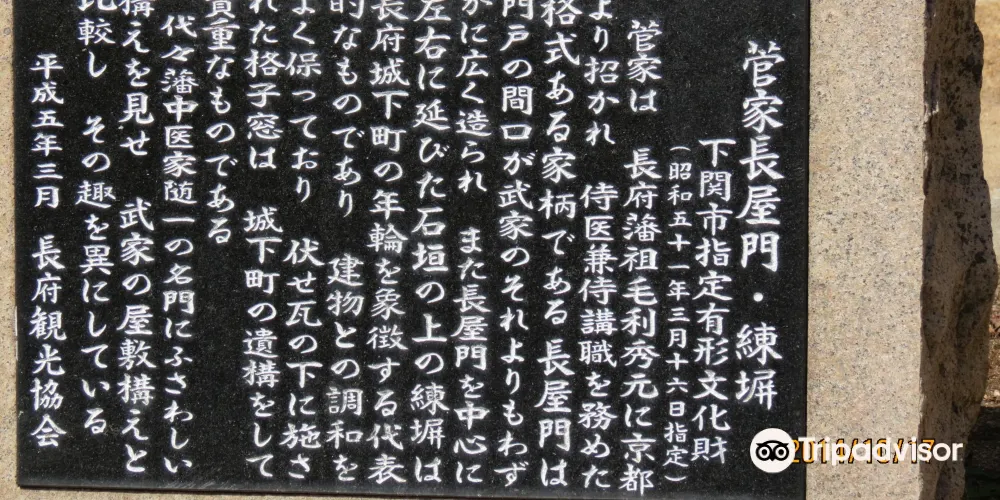 菅家長屋門・練塀
下関市指定有形文化財
(昭和五十一年三月十六日指定)
菅家は 長府藩祖毛利秀元に京都
より招かれ 侍医兼侍講職を務めた
格式ある家柄である 長屋門は
門戸の間口が武家のそれよりもわず
かに広く造られ また長屋門を中心に
左右に延びた石垣の上の練塀は
長府城下町の年輪を象徴する代表
的なものであり 建物との調和を
よく保っており 伏せ瓦の下に施さ
れた格子窓は 城下町の遺構をして
貴重なものである
代々藩中医家随一の名門にふさわしい
構えを見せ 武家の屋敷構えと
比較し その趣を異にしている
平成五年三月 長府観光協会
Tripadvisor